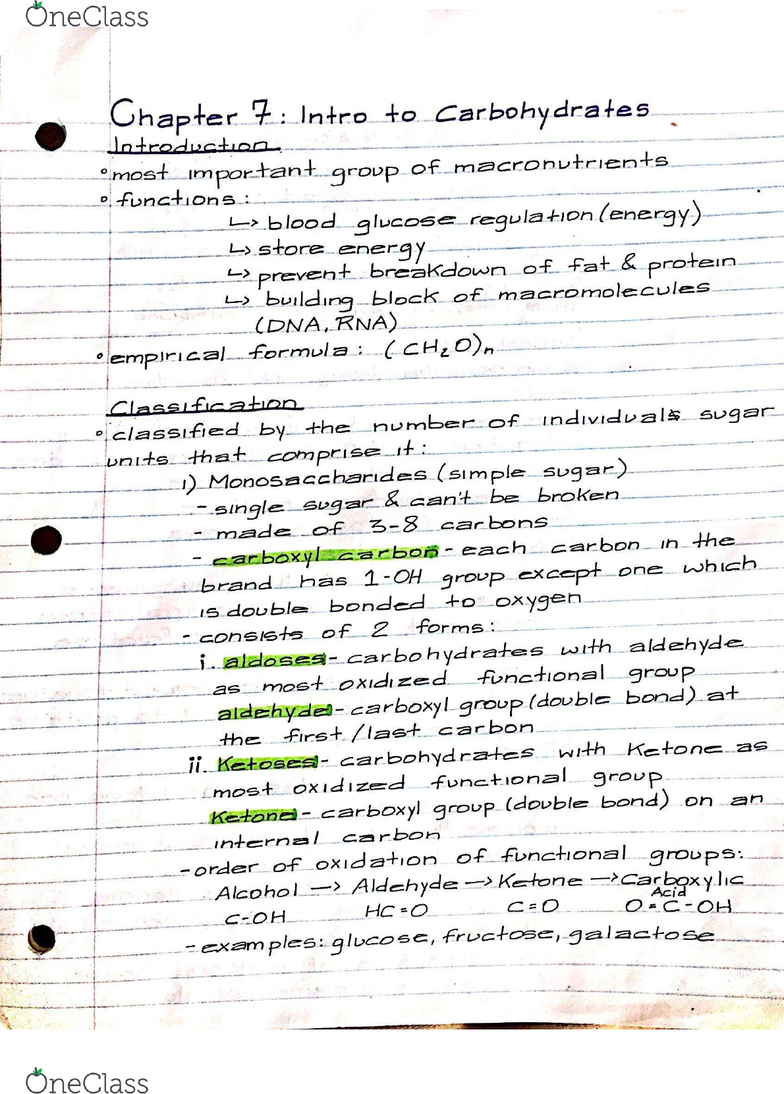 OneClass
Chapter 7: Intro to Carbohydrates
Introduction
°most important group of macronutrients
° functions:
↳ blood glucose regulation (energy)
↳ store energy
↳ prevent breakdown of fat & protein
↳ building block of macromolecules
(DNA, RNA)
° empirical formula: (CH₂O)n
Classification
° classified by the number of individual sugar
units that comprise it:
1) Monosaccharides (simple sugar)
- single sugar & can't be broken
- made of 3-8 carbons
- carboxyl carbon - each carbon in the
brand has 1-OH group except one which
is double bonded to oxygen
- consists of 2 forms:
i. aldoses - carbohydrates with aldehyde
as most oxidized functional group
aldehyde - carboxyl group (double bond) at
the first/last carbon
ii. Ketoses - carbohydrates with Ketone as
most oxidized functional group
Ketone - carboxyl group (double bond) on an
internal carbon
- order of oxidation of functional groups:
Alcohol → Aldehyde → Ketone → Carboxylic
Acid
C-OH HC=O C=O O=C-OH
- examples: glucose, fructose, galactose
OneClass